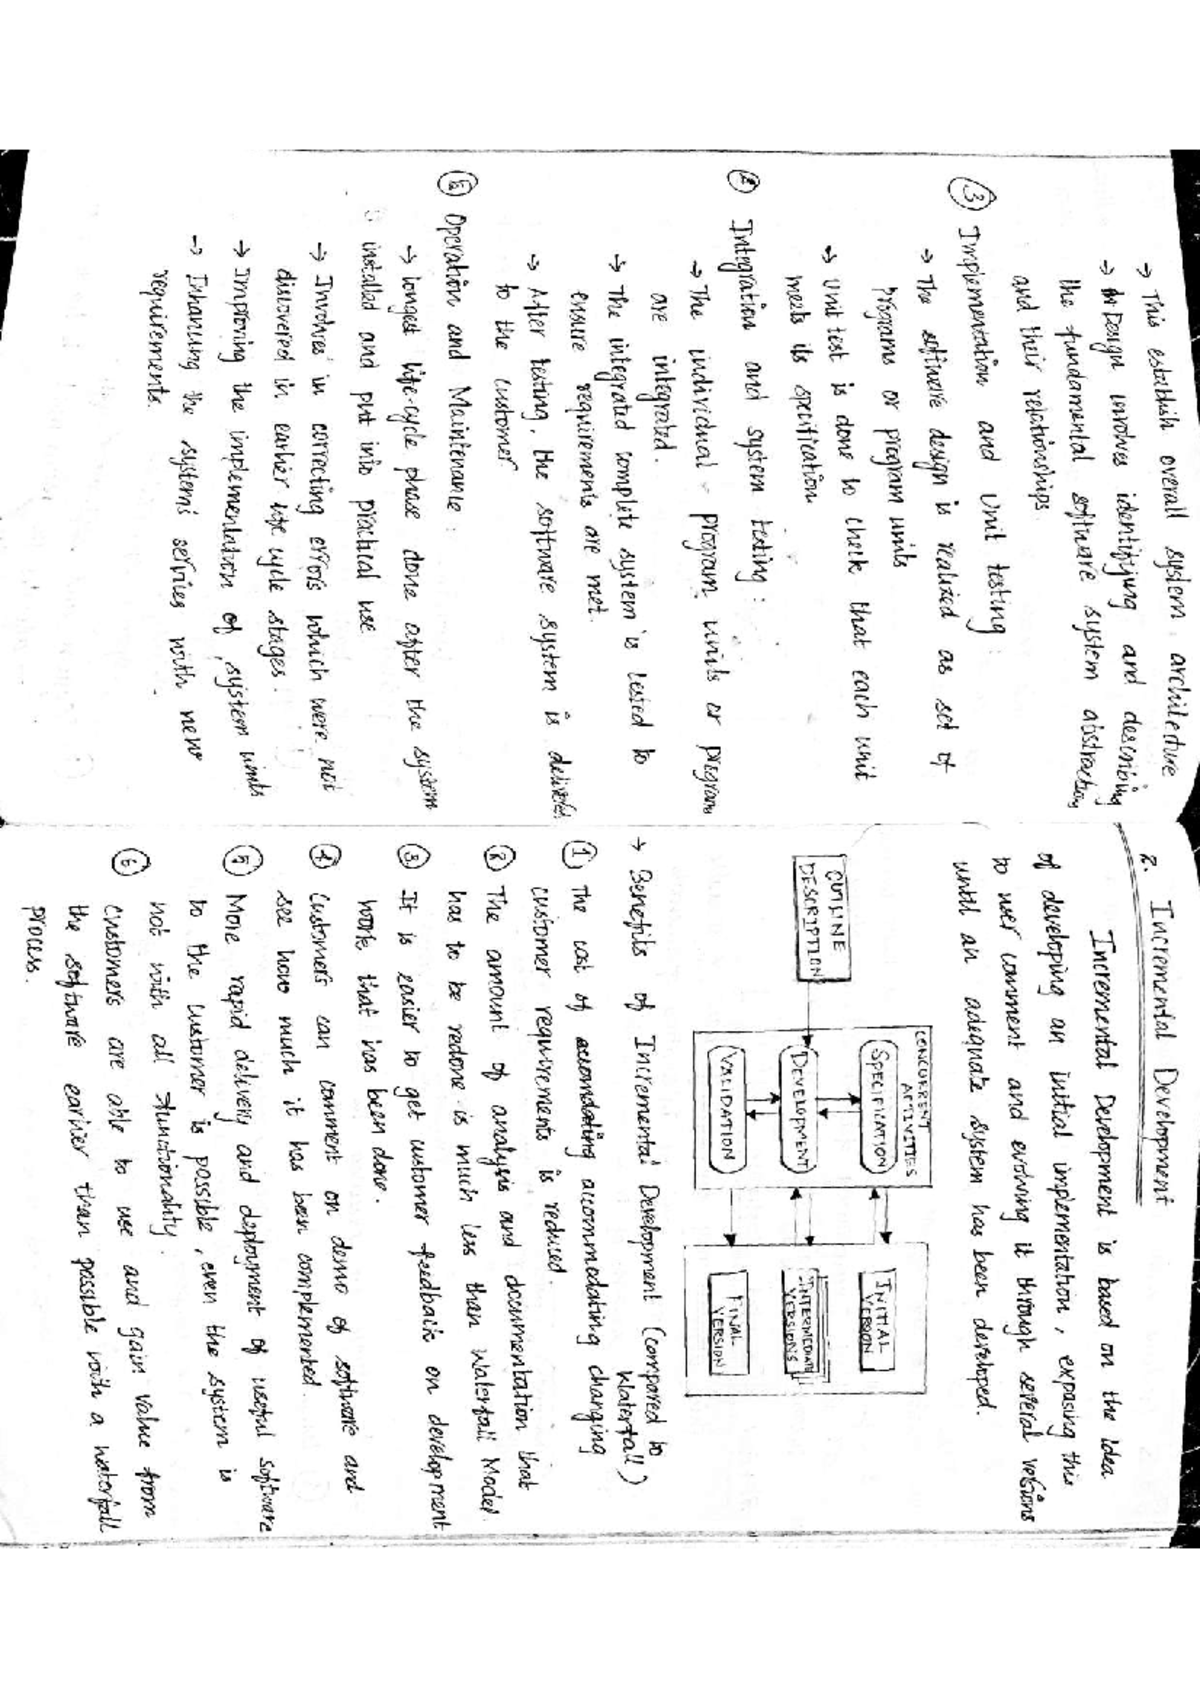 → This establish overall system architecture
→ Design involves identifying and describing
the fundamental software system abstractions
and their relationships
③ Implementation and Unit testing:
→ The software design is realized as set of
programs or program units
→ Unit test is done to check that each unit
meets its specification
④ Integration and system testing:
→ The individual program units or program
are integrated.
→ The integrated complete system is tested to
ensure requirements are met.
→ After testing, the software system is delivered
to the customer
⑤ Operation and Maintenance:
→ longest life-cycle phase done after the system
installed and put into practical use
→ Involves in correcting errors which were not
discovered in earlier life cycle stages.
→ Improving the implementation of system units
→ Enhancing the systems services with new
requirements.
2. Incremental Development
Incremental Development is based on the idea
of developing an initial implementation, exposing this
to user comment and evolving it through several versions
until an adequate system has been developed.
CONCURRENT
ACTIVITIES
SPECIFICATION
INITIAL
VERSION
OUTLINE
DESCRIPTION
DEVELOPMENT
INTERMEDIATE
VERSIONS
VALIDATION
FINAL
VERSION
→ Benefits of Incremental Development (compared to
Waterfall)
① The cost of accomodating changing
customer requirements is reduced.
② The amount of analysis and documentation that
has to be redone is much less than Waterfall Model.
③ It is easier to get customer feedback on development
work that has been done.
④ Customers can comment on demo of software and
see how much it has been complemented.
⑤ More rapid delivery and deployment of useful software
to the customer is possible, even the system is
not with all functionality.
⑥ Customers are able to use and gain value from
the software earlier than possible with a waterfall
process.